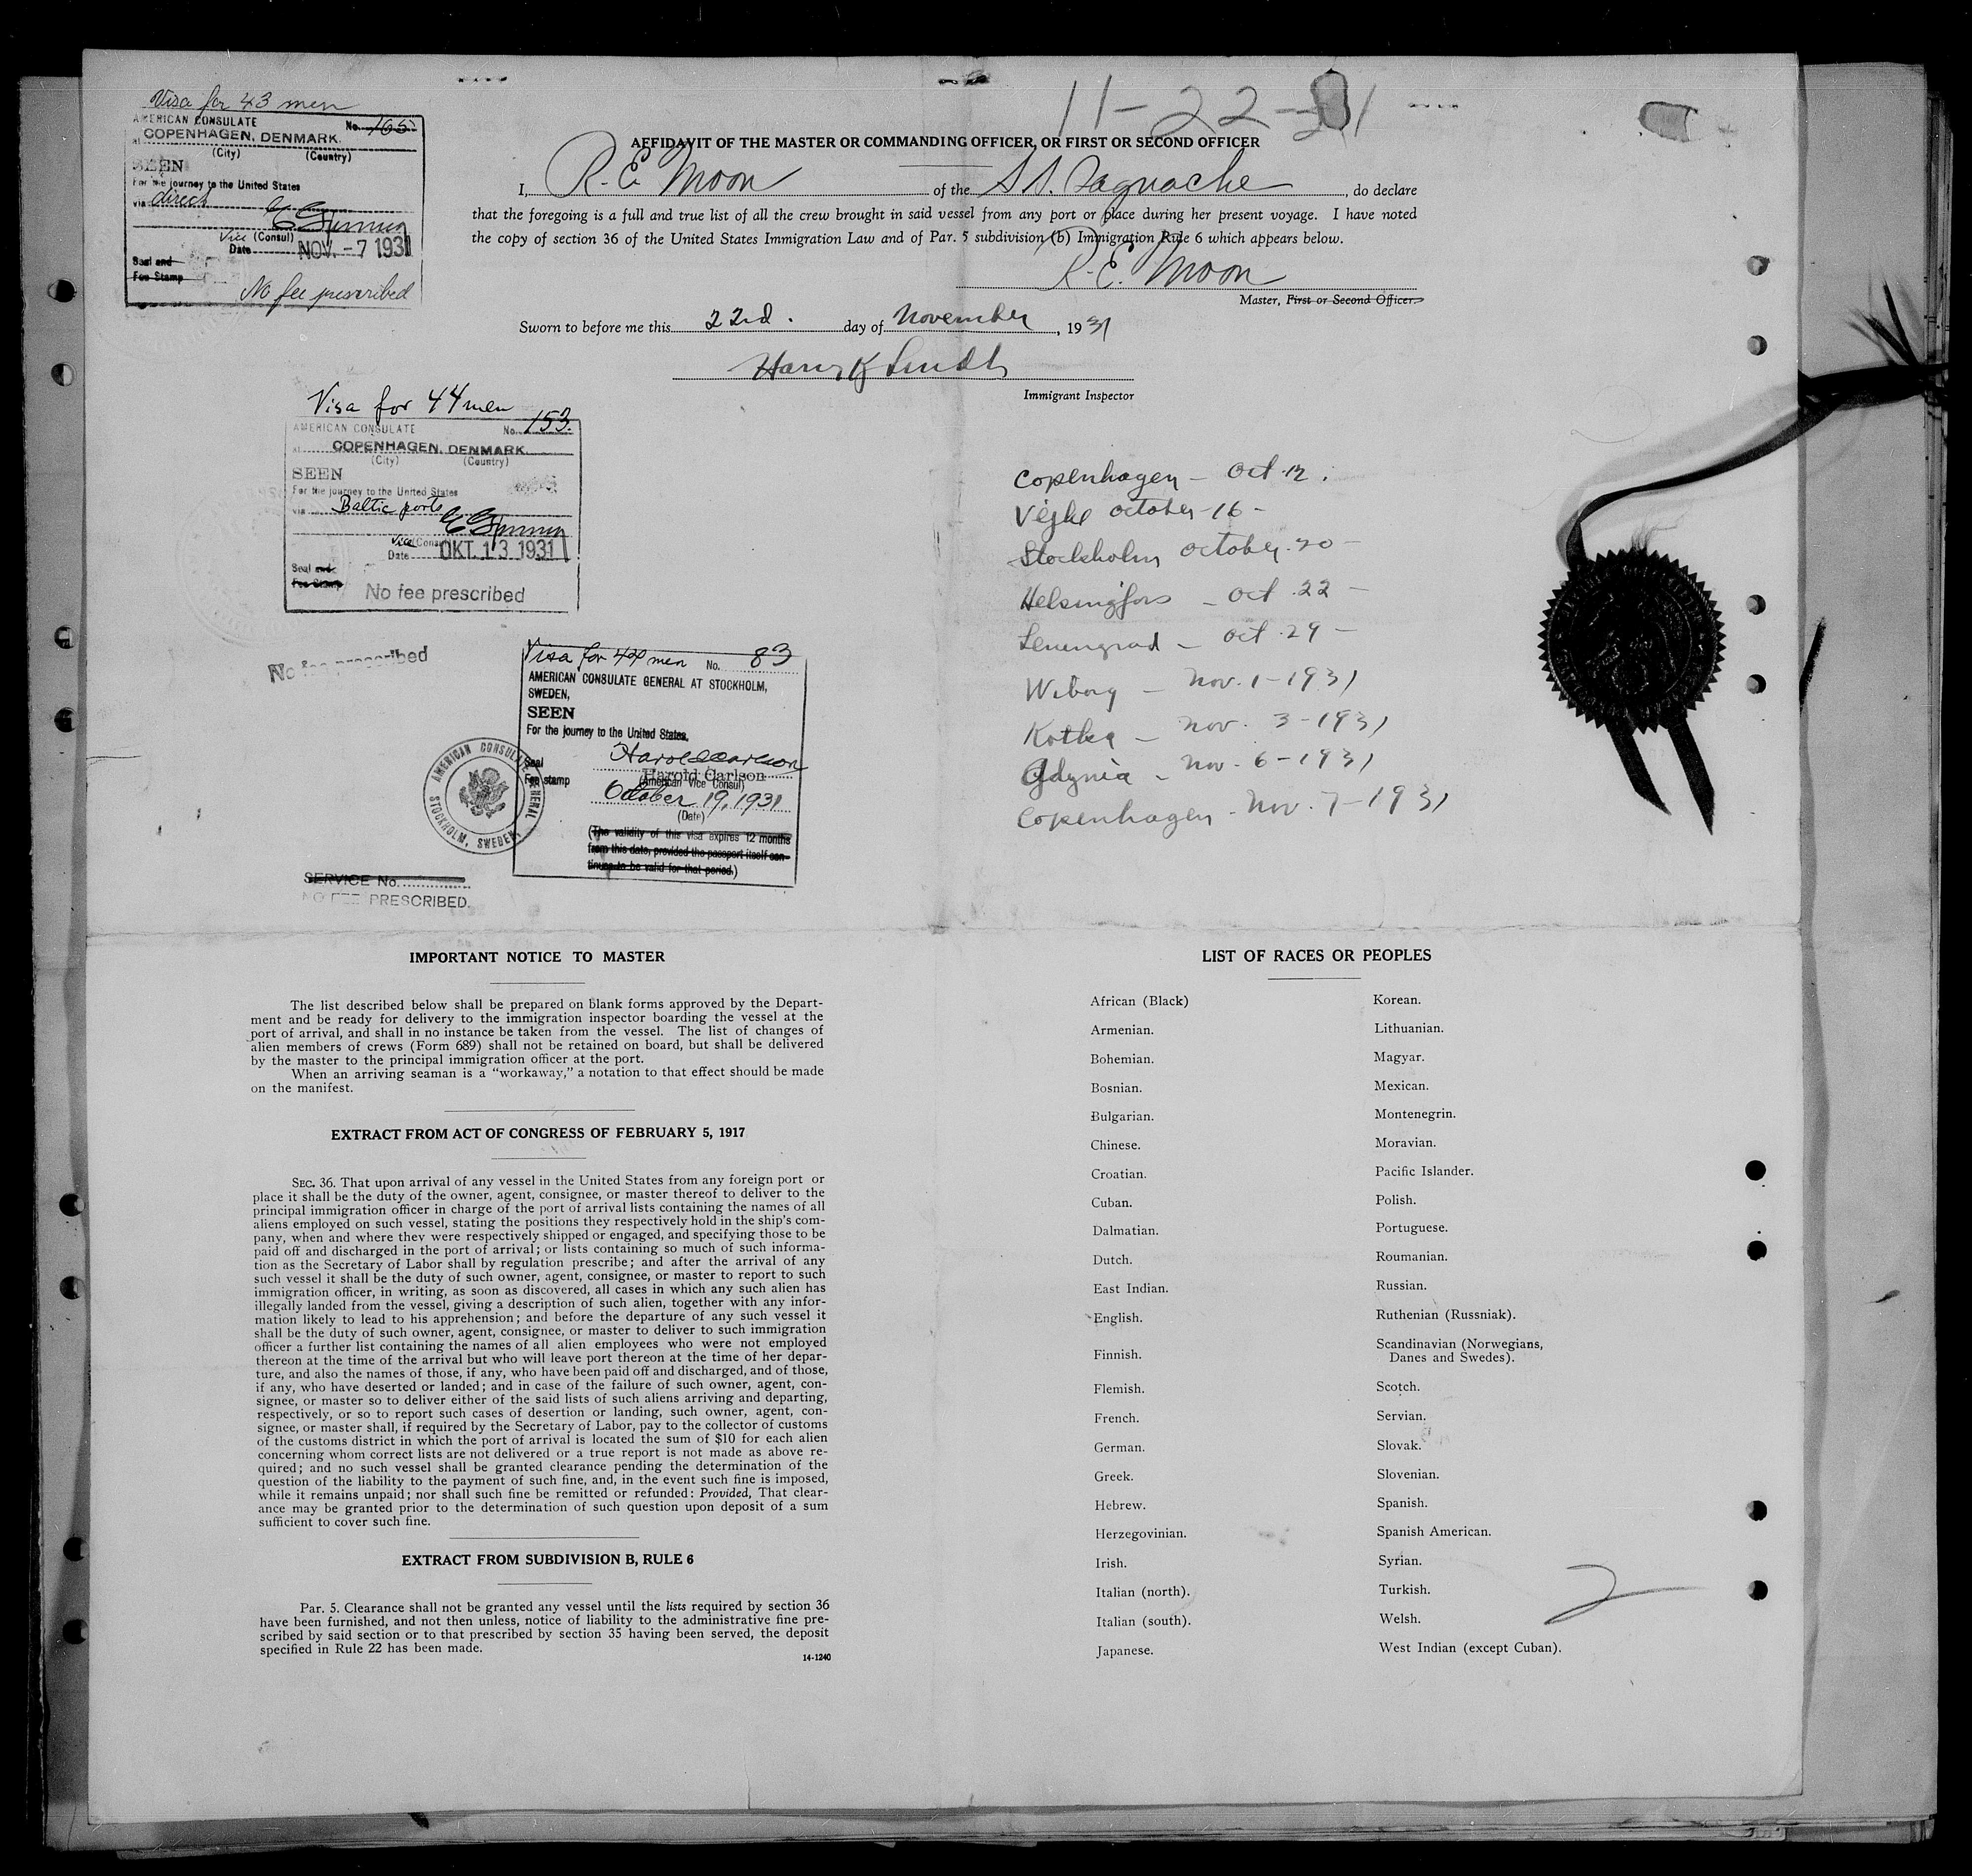 11-22-31
Visa for 43 men
AMERICAN CONSULATE No. 165
at COPENHAGEN, DENMARK.
(City) (Country)
SEEN
For the journey to the United States
via direct
Vice (Consul)
Date NOV. -7 1931
Seal and
Fee Stamp
No fee prescribed
AFFIDAVIT OF THE MASTER OR COMMANDING OFFICER, OR FIRST OR SECOND OFFICER
I, R. E. Moon of the S S. Saguache, do declare
that the foregoing is a full and true list of all the crew brought in said vessel from any port or place during her present voyage. I have noted
the copy of section 36 of the United States Immigration Law and of Par. 5 subdivision (b) Immigration Rule 6 which appears below.
R. E. Moon
Master, First or Second Officer.
Sworn to before me this 22nd. day of November, 1931
Immigrant Inspector
Visa for 44 men
AMERICAN CONSULATE No. 153.
at COPENHAGEN, DENMARK.
(City) (Country)
SEEN
For the journey to the United States
via Baltic ports
Vice (Consul)
Date OKT. 13 1931
Seal and
Fee Stamp
No fee prescribed
No fee prescribed
Visa for 44 men No. 83
AMERICAN CONSULATE GENERAL AT STOCKHOLM,
SWEDEN,
SEEN
For the journey to the United States,
Harold Carlson
Seal
Harold Carlson
Fee stamp (American Vice Consul)
October 19, 1931
(Date)
(The validity of this visa expires 12 months
from this date, provided the passport itself con-
tinues to be valid for that period.)
AMERICAN CONSULATE GENERAL
STOCKHOLM, SWEDEN.
SERVICE No.
NO FEE PRESCRIBED.
Copenhagen - Oct 12.
Vejle October-16-
Stockholm October 20-
Helsingfors - Oct. 22-
Leningrad - Oct. 29-
Wiborg - Nov. 1-1931
Kotka - Nov. 3-1931
Gdynia - Nov. 6-1931
Copenhagen - Nov. 7-1931
IMPORTANT NOTICE TO MASTER
The list described below shall be prepared on blank forms approved by the Depart-
ment and be ready for delivery to the immigration inspector boarding the vessel at the
port of arrival, and shall in no instance be taken from the vessel. The list of changes of
alien members of crews (Form 689) shall not be retained on board, but shall be delivered
by the master to the principal immigration officer at the port.
When an arriving seaman is a “workaway,” a notation to that effect should be made
on the manifest.
EXTRACT FROM ACT OF CONGRESS OF FEBRUARY 5, 1917
SEC. 36. That upon arrival of any vessel in the United States from any foreign port or
place it shall be the duty of the owner, agent, consignee, or master thereof to deliver to the
principal immigration officer in charge of the port of arrival lists containing the names of all
aliens employed on such vessel, stating the positions they respectively hold in the ship's com-
pany, when and where they were respectively shipped or engaged, and specifying those to be
paid off and discharged in the port of arrival; or lists containing so much of such informa-
tion as the Secretary of Labor shall by regulation prescribe; and after the arrival of any
such vessel it shall be the duty of such owner, agent, consignee, or master to report to such
immigration officer, in writing, as soon as discovered, all cases in which any such alien has
illegally landed from the vessel, giving a description of such alien, together with any infor-
mation likely to lead to his apprehension; and before the departure of any such vessel it
shall be the duty of such owner, agent, consignee, or master to deliver to such immigration
officer a further list containing the names of all alien employees who were not employed
thereon at the time of the arrival but who will leave port thereon at the time of her depar-
ture, and also the names of those, if any, who have been paid off and discharged, and of those,
if any, who have deserted or landed; and in case of the failure of such owner, agent, con-
signee, or master so to deliver either of the said lists of such aliens arriving and departing,
respectively, or so to report such cases of desertion or landing, such owner, agent, con-
signee, or master shall, if required by the Secretary of Labor, pay to the collector of customs
of the customs district in which the port of arrival is located the sum of $10 for each alien
concerning whom correct lists are not delivered or a true report is not made as above re-
quired; and no such vessel shall be granted clearance pending the determination of the
question of the liability to the payment of such fine, and, in the event such fine is imposed,
while it remains unpaid; nor shall such fine be remitted or refunded: Provided, That clear-
ance may be granted prior to the determination of such question upon deposit of a sum
sufficient to cover such fine.
EXTRACT FROM SUBDIVISION B, RULE 6
Par. 5. Clearance shall not be granted any vessel until the lists required by section 36
have been furnished, and not then unless, notice of liability to the administrative fine pre-
scribed by said section or to that prescribed by section 35 having been served, the deposit
specified in Rule 22 has been made.
14-1240
LIST OF RACES OR PEOPLES
African (Black)
Armenian.
Bohemian.
Bosnian.
Bulgarian.
Chinese.
Croatian.
Cuban.
Dalmatian.
Dutch.
East Indian.
English.
Finnish.
Flemish.
French.
German.
Greek.
Hebrew.
Herzegovinian.
Irish.
Italian (north).
Italian (south).
Japanese.
Korean.
Lithuanian.
Magyar.
Mexican.
Montenegrin.
Moravian.
Pacific Islander.
Polish.
Portuguese.
Roumanian.
Russian.
Ruthenian (Russniak).
Scandinavian (Norwegians,
Danes and Swedes).
Scotch.
Servian.
Slovak.
Slovenian.
Spanish.
Spanish American.
Syrian.
Turkish.
Welsh.
West Indian (except Cuban).
2